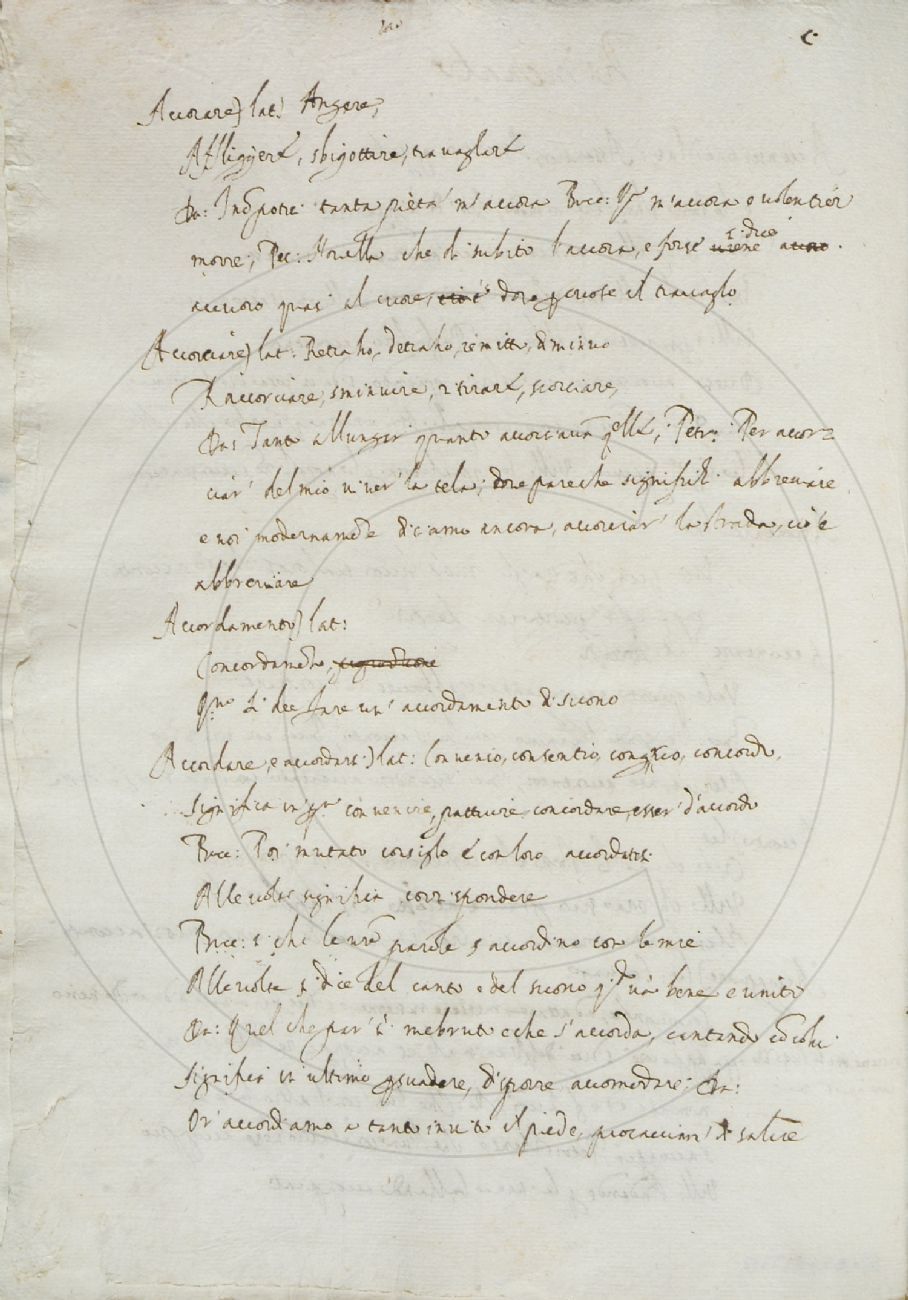 c.
Accorare) lat: Angere,
Affliggere, sbigottire, travagliare
Da: tanta pietà m'accora Bocc: m'accora e volentier
morrei, Pec: Novella che di subito l'accora, e forse si dice
accuoro quasi al cuore, cioè dove percuote il travaglio
Accorciare) lat: Retraho, detraho, remitto, diminuo
Raccorciare, sminuire, ritirare, scorciare,
Da: Tanto allungar quanto accorciava quelle, Petr: Per accor=
ciar del mio viver la tela, dove pare che significhi abbreviare
e noi modernamente diciamo ancora, accorciar la strada, cioè
abbreviare
Accordamento) lat:
Concordamento,
si dee fare un accordamento di suono
Accordare, e accordarsi) lat: Convenio, consentio, congruo, concordo,
Significa in convenire, pattuire, concordare, esser d'accordo
Bocc: Poi mutato consiglio e con loro accordatosi
Alle volte significa corrispondere
Bocc: si che le vre parole s accordino con le mie
Alle volte si dice del canto e del suono qdo và bene e unito
Da: Quel che par sì membruto e che s'accorda, cantando con colui
Significa in ultimo persuadere, disporre accomodare; Da:
Or accordiamo a tanto invito il piede, procacciam di salire